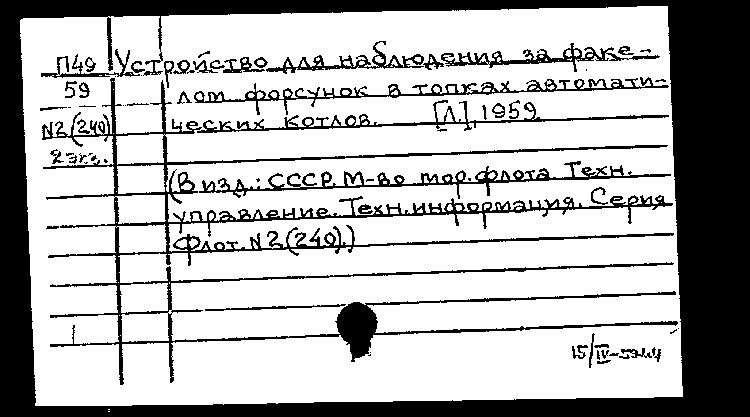 П49 Устройство для наблюдения за факе-
59 лом форсунок в топках автомати-
N2(240) ческих котлов. [Л], 1959
2 экз.
(В изд.: СССР. М-во мор. флота. Техн.
управление. Техн. информация. Серия
Флот. N2(240).)
15/IV-